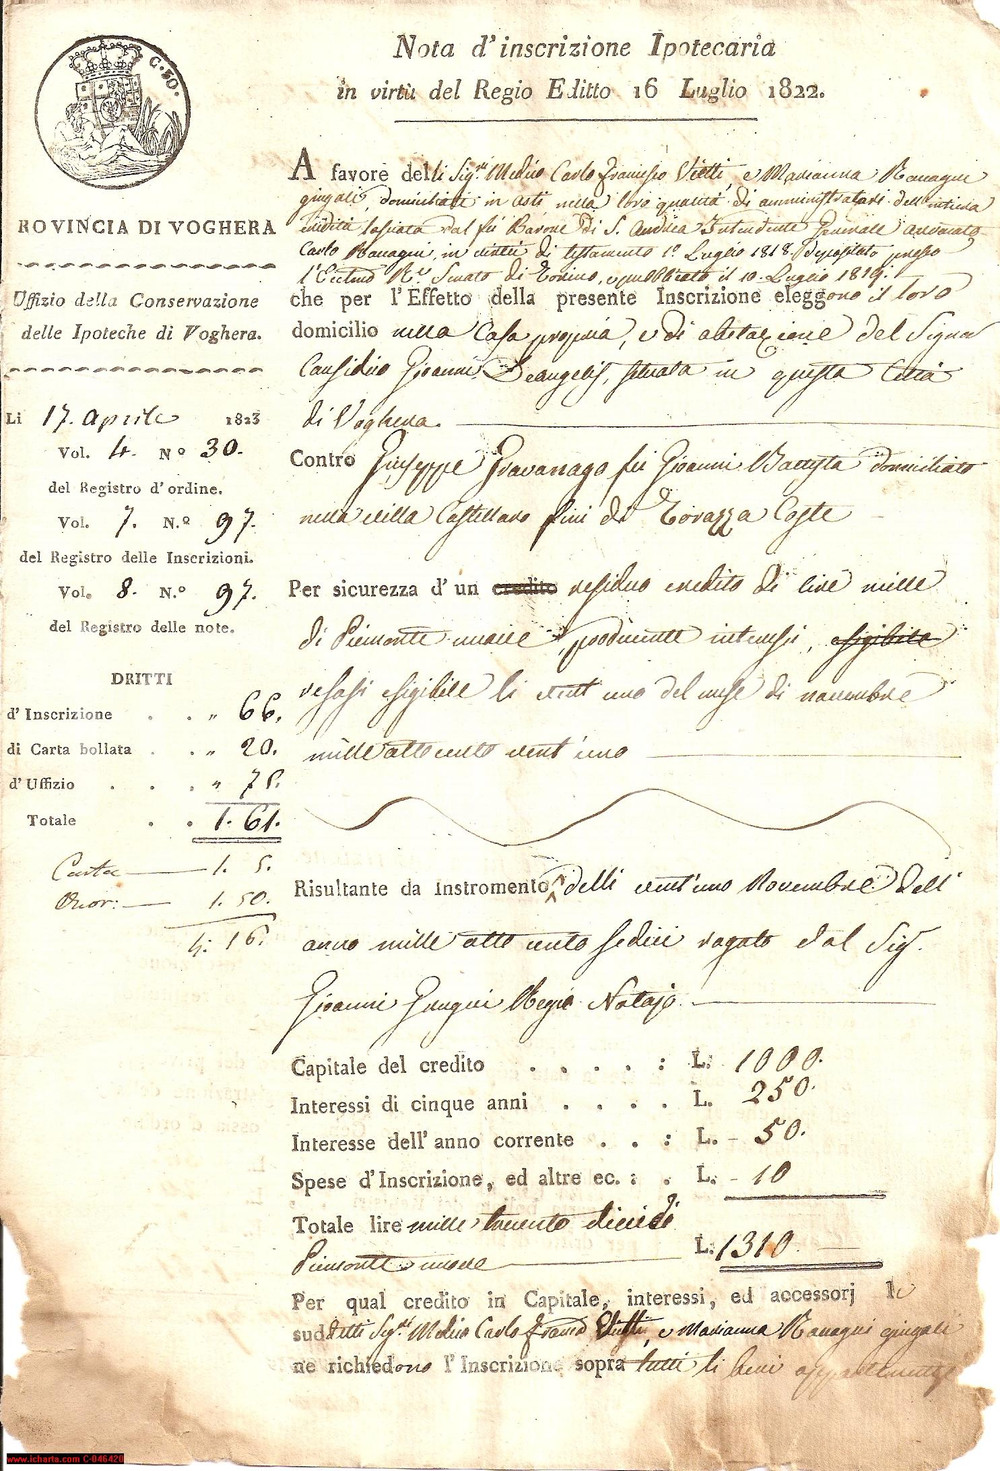 Nota d'inscrizione Ipotecaria
in virtù del Regio Editto 16 Luglio 1822.
C. 50.
ROVINCIA DI VOGHERA
Uffizio della Conservazione
delle Ipoteche di Voghera.
Li 17. Aprile 1823
Vol. 4. Nº 30.
del Registro d'ordine.
Vol. 7. N.º 97.
del Registro delle Inscrizioni.
Vol. 8. N.º 97.
del Registro delle note.
DRITTI
d'Inscrizione . . „ 66.
di Carta bollata . . „ 20.
d'Uffizio . . . „ 75.
Totale . . 1. 61.
Carta 1. 5.
Onor: 1. 50.
4. 16.
A favore delli Sig.ri Medico Carlo Francesco e Marianna
giugali, domiciliati in Asti nella loro qualità di amministratori dell'intiera
eredità lasciata dal fu Barone di S. Andrea Intendente Generale avvocato
Carlo in virtù di testamento 1º Luglio 1818. Depositato presso
l'Eccel.mo R.º Senato di Torino, e pubblicato il 10. Luglio 1819.
che per l'Effetto della presente Inscrizione eleggono il loro
domicilio nella Casa propria, e di abitazione del Signor
Causidico Giovanni Deangelis, situata in questa Città
di Voghera.
Contro Giuseppe Fravanago fu Giovanni Battista domiciliato
nella villa Castellaro fini di Torazza Coste
Per sicurezza d'un credito residuo credito di lire mille
di Piemonte nuove, producente interessi, esigibile
resosi esigibile li vent'uno del mese di novembre
mille otto cento vent'uno
Risultante da Instromento delli vent'uno Novembre dell'
anno mille otto cento sedici rogato dal Sig.
Giovanni Regio Notajo.
Capitale del credito . . . . . : L. 1000.
Interessi di cinque anni . . . . L. 250.
Interesse dell'anno corrente . . : L. - 50.
Spese d'Inscrizione, ed altre ec. : . L. - 10
Totale lire mille trecento dieci di
Piemonte nuove L. 1310.
Per qual credito in Capitale, interessi, ed accessorj li
suddetti Sig.ri Medico Carlo e Marianna giugali
ne richiedono l'Inscrizione sopra tutti li beni
www.icharta.com C-046420